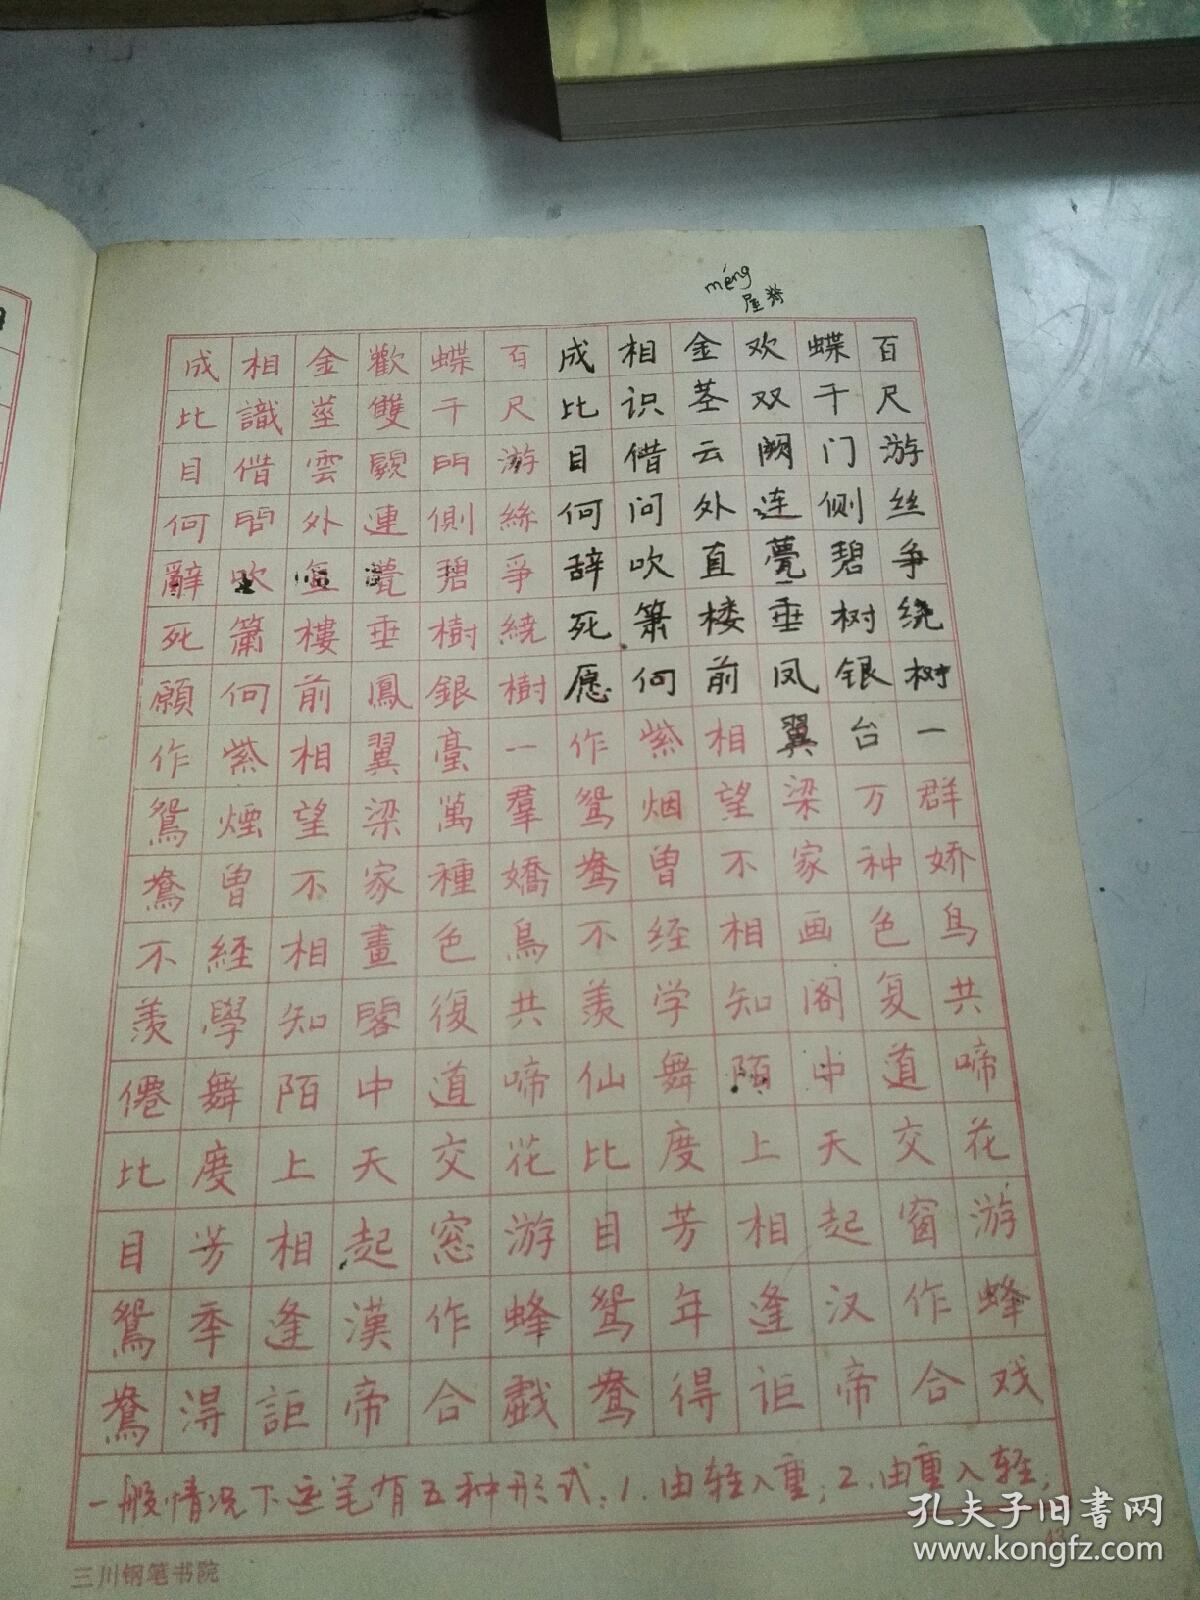 méng
屋脊
百尺游丝争绕树一群娇鸟共啼花游蜂戏
蝶千门侧碧树银台万种色复道交窗作合
欢双阙连甍垂凤翼梁家画阁中天起汉帝
金茎云外直楼前相望不相知陌上相逢讵
相识借问吹箫何紫烟曾经学舞度芳年得
成比目何辞死愿作鸳鸯不羡仙比目鸳鸯
百尺游絲爭繞樹一羣嬌鳥共啼花游蜂戲
蝶千門側碧樹銀臺萬種色復道交窓作合
歡雙闕連甍垂鳳翼梁家畫閣中天起漢帝
金莖雲外直樓前相望不相知陌上相逢詎
相識借問吹簫何紫煙曾經學舞度芳季得
成比目何辭死願作鴛鴦不羨僊比目鴛鴦
一般情况下运笔有五种形式：1.由轻入重；2.由重入轻；
三川钢笔书院
43
孔夫子旧书网
www.kongfz.com